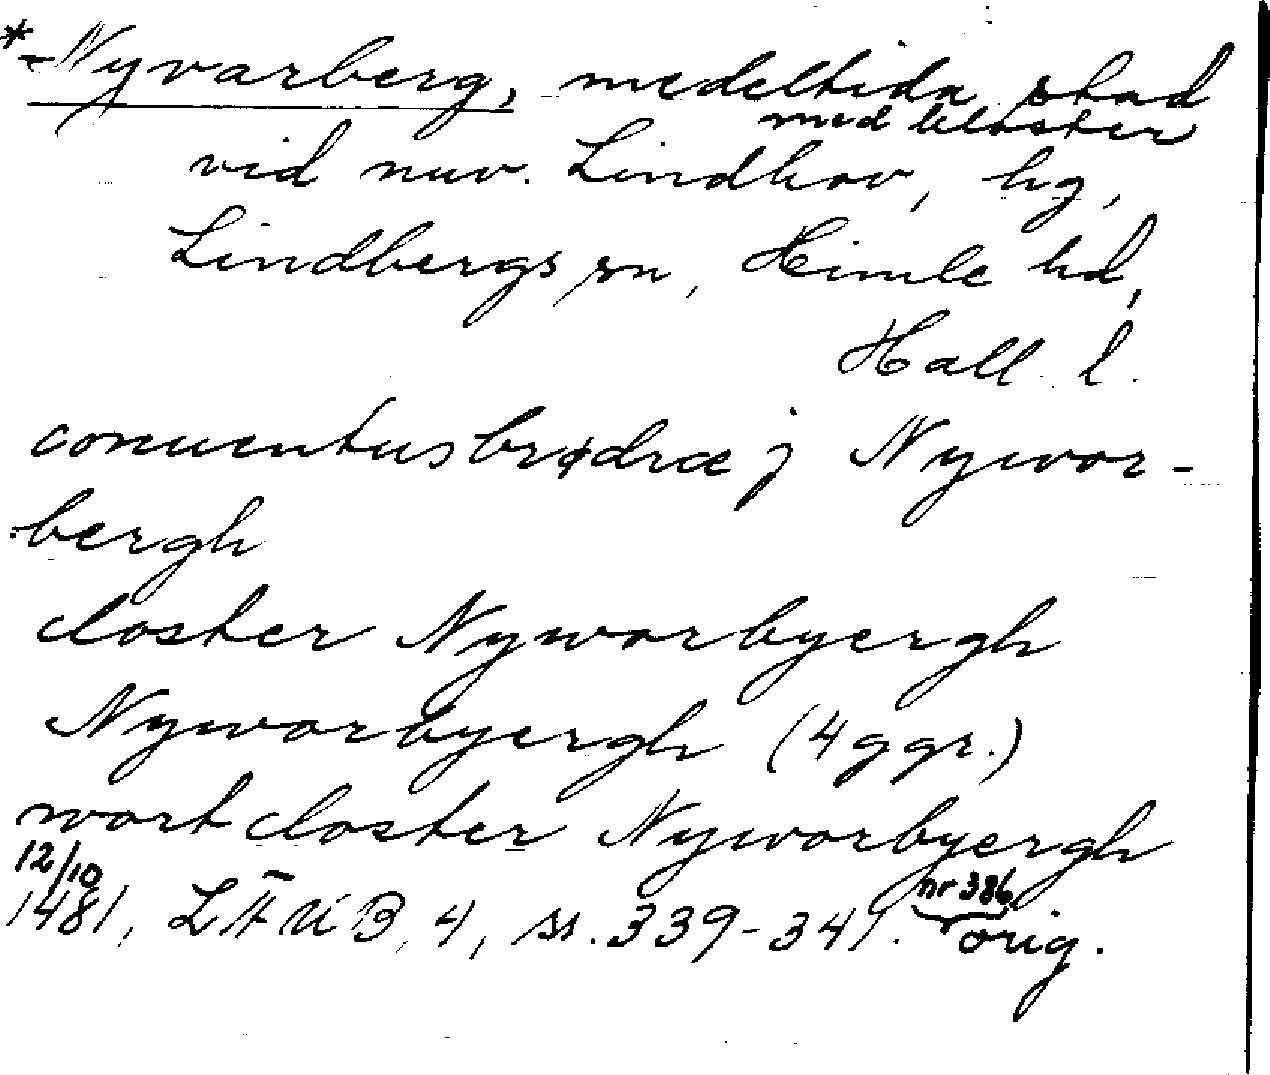 *Nyvarberg, medeltida stad
med kloster
vid nuv. Lindhov, hg,
Lindbergs sn, Himle hd,
Hall. l.
conuentusbrødræ j Nywor-
bergh
closter Nyworbyergh
Nyworbyergh (4 ggr.)
wort closter Nyworbyergh
12/10 nr 386
1481, ÆUB, 4, ss. 339-341. orig.